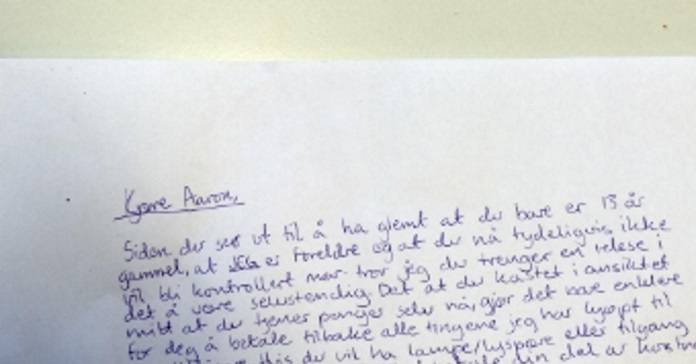 Kjære Aaron,
Siden du ser ut til å ha glemt at du bare er 13 år
gammel, at JEG er forelder og at du nå tydeligvis ikke
vil bli kontrollert mer tror jeg du trenger en lekse i
det å være selvstendig. Det at du kastet i ansiktet
mitt at du tjener penger selv nå, gjør det bare enklere
for deg å betale tilbake alle tingene jeg har kjøpt til
du vil ha lampe/lyspære eller tilgang
din del av